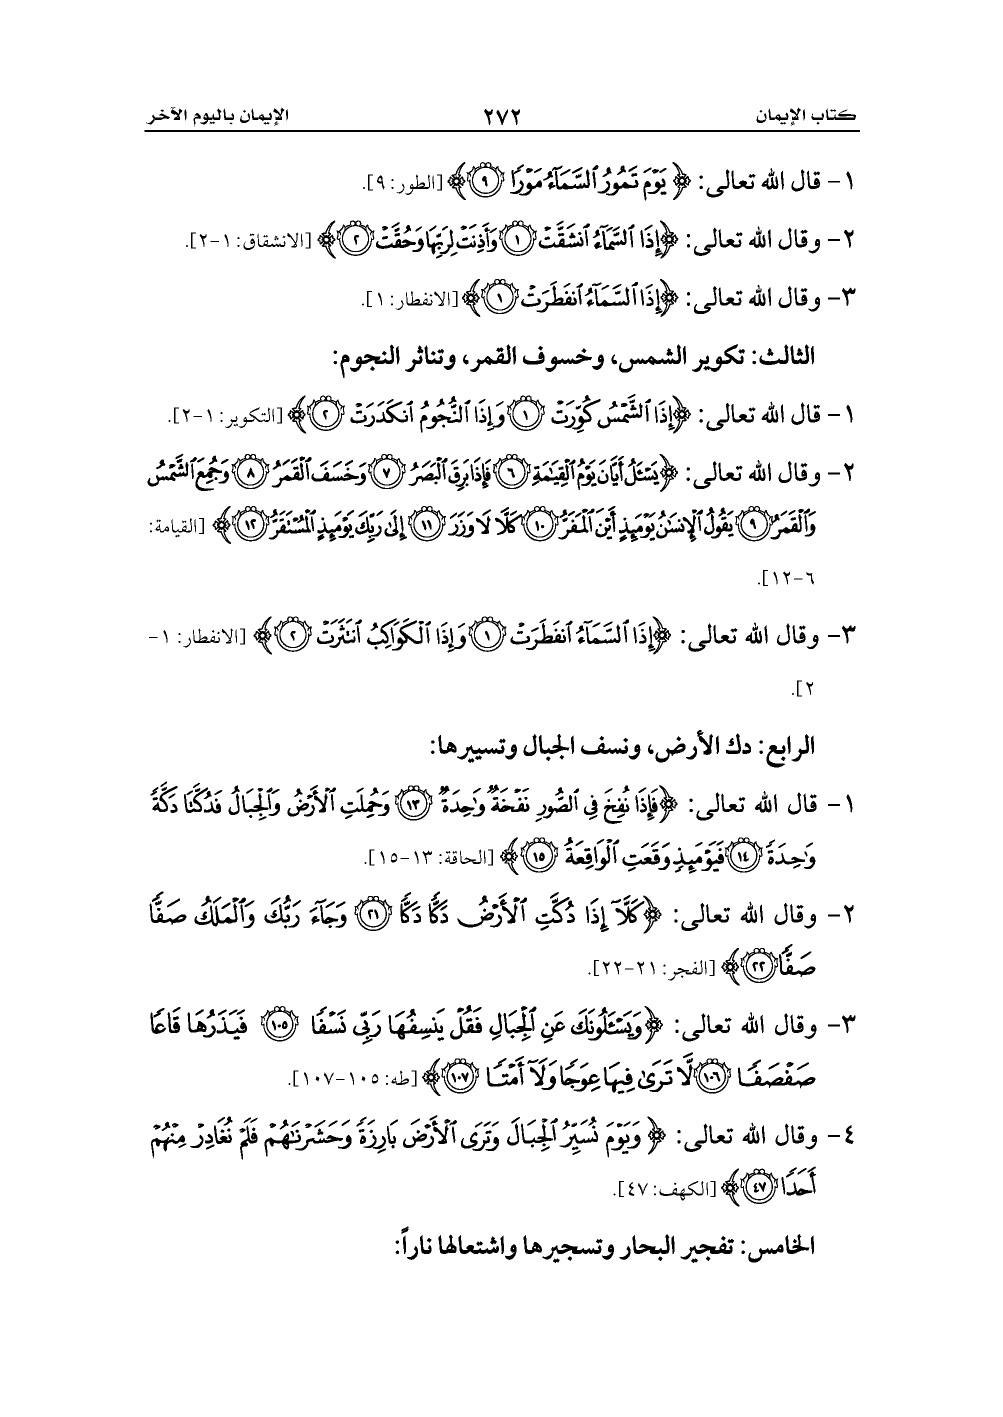 كتاب الإيمان ٢٧٢ الإيمان باليوم الآخر
١- قال الله تعالى: ﴿ يَوْمَ تَمُورُ ٱلسَّمَآءُ مَوْرًا ٩ ﴾ [الطور: ٩].
٢- وقال الله تعالى: ﴿ إِذَا ٱلسَّمَآءُ ٱنشَقَّتْ ١ وَأَذِنَتْ لِرَبِّهَا وَحُقَّتْ ٢ ﴾ [الانشقاق: ١-٢].
٣- وقال الله تعالى: ﴿ إِذَا ٱلسَّمَآءُ ٱنفَطَرَتْ ١ ﴾ [الانفطار: ١].
الثالث: تكوير الشمس، وخسوف القمر، وتناثر النجوم:
١- قال الله تعالى: ﴿ إِذَا ٱلشَّمْسُ كُوِّرَتْ ١ وَإِذَا ٱلنُّجُومُ ٱنكَدَرَتْ ٢ ﴾ [التكوير: ١-٢].
٢- وقال الله تعالى: ﴿ يَسْـَٔلُ أَيَّانَ يَوْمُ ٱلْقِيَـٰمَةِ ٦ فَإِذَا بَرِقَ ٱلْبَصَرُ ٧ وَخَسَفَ ٱلْقَمَرُ ٨ وَجُمِعَ ٱلشَّمْسُ
وَٱلْقَمَرُ ٩ يَقُولُ ٱلْإِنسَـٰنُ يَوْمَئِذٍ أَيْنَ ٱلْمَفَرُّ ١٠ كَلَّا لَا وَزَرَ ١١ إِلَىٰ رَبِّكَ يَوْمَئِذٍ ٱلْمُسْتَقَرُّ ١٢ ﴾ [القيامة:
٦-١٢].
٣- وقال الله تعالى: ﴿ إِذَا ٱلسَّمَآءُ ٱنفَطَرَتْ ١ وَإِذَا ٱلْكَوَاكِبُ ٱنتَثَرَتْ ٢ ﴾ [الانفطار: ١-
٢].
الرابع: دك الأرض، ونسف الجبال وتسييرها:
١- قال الله تعالى: ﴿ فَإِذَا نُفِخَ فِي ٱلصُّورِ نَفْخَةٌ وَٰحِدَةٌ ١٣ وَحُمِلَتِ ٱلْأَرْضُ وَٱلْجِبَالُ فَدُكَّتَا دَكَّةً
وَٰحِدَةً ١٤ فَيَوْمَئِذٍ وَقَعَتِ ٱلْوَاقِعَةُ ١٥ ﴾ [الحاقة: ١٣-١٥].
٢- وقال الله تعالى: ﴿ كَلَّآ إِذَا دُكَّتِ ٱلْأَرْضُ دَكًّا دَكًّا ٢١ وَجَآءَ رَبُّكَ وَٱلْمَلَكُ صَفًّا
صَفًّا ٢٢ ﴾ [الفجر: ٢١-٢٢].
٣- وقال الله تعالى: ﴿ وَيَسْـَٔلُونَكَ عَنِ ٱلْجِبَالِ فَقُلْ يَنسِفُهَا رَبِّي نَسْفًا ١٠٥ فَيَذَرُهَا قَاعًا
صَفْصَفًا ١٠٦ لَّا تَرَىٰ فِيهَا عِوَجًا وَلَآ أَمْتًا ١٠٧ ﴾ [طه: ١٠٥-١٠٧].
٤- وقال الله تعالى: ﴿ وَيَوْمَ نُسَيِّرُ ٱلْجِبَالَ وَتَرَى ٱلْأَرْضَ بَارِزَةً وَحَشَرْنَـٰهُمْ فَلَمْ نُغَادِرْ مِنْهُمْ
أَحَدًا ٤٧ ﴾ [الكهف: ٤٧].
الخامس: تفجير البحار وتسجيرها واشتعالها ناراً: